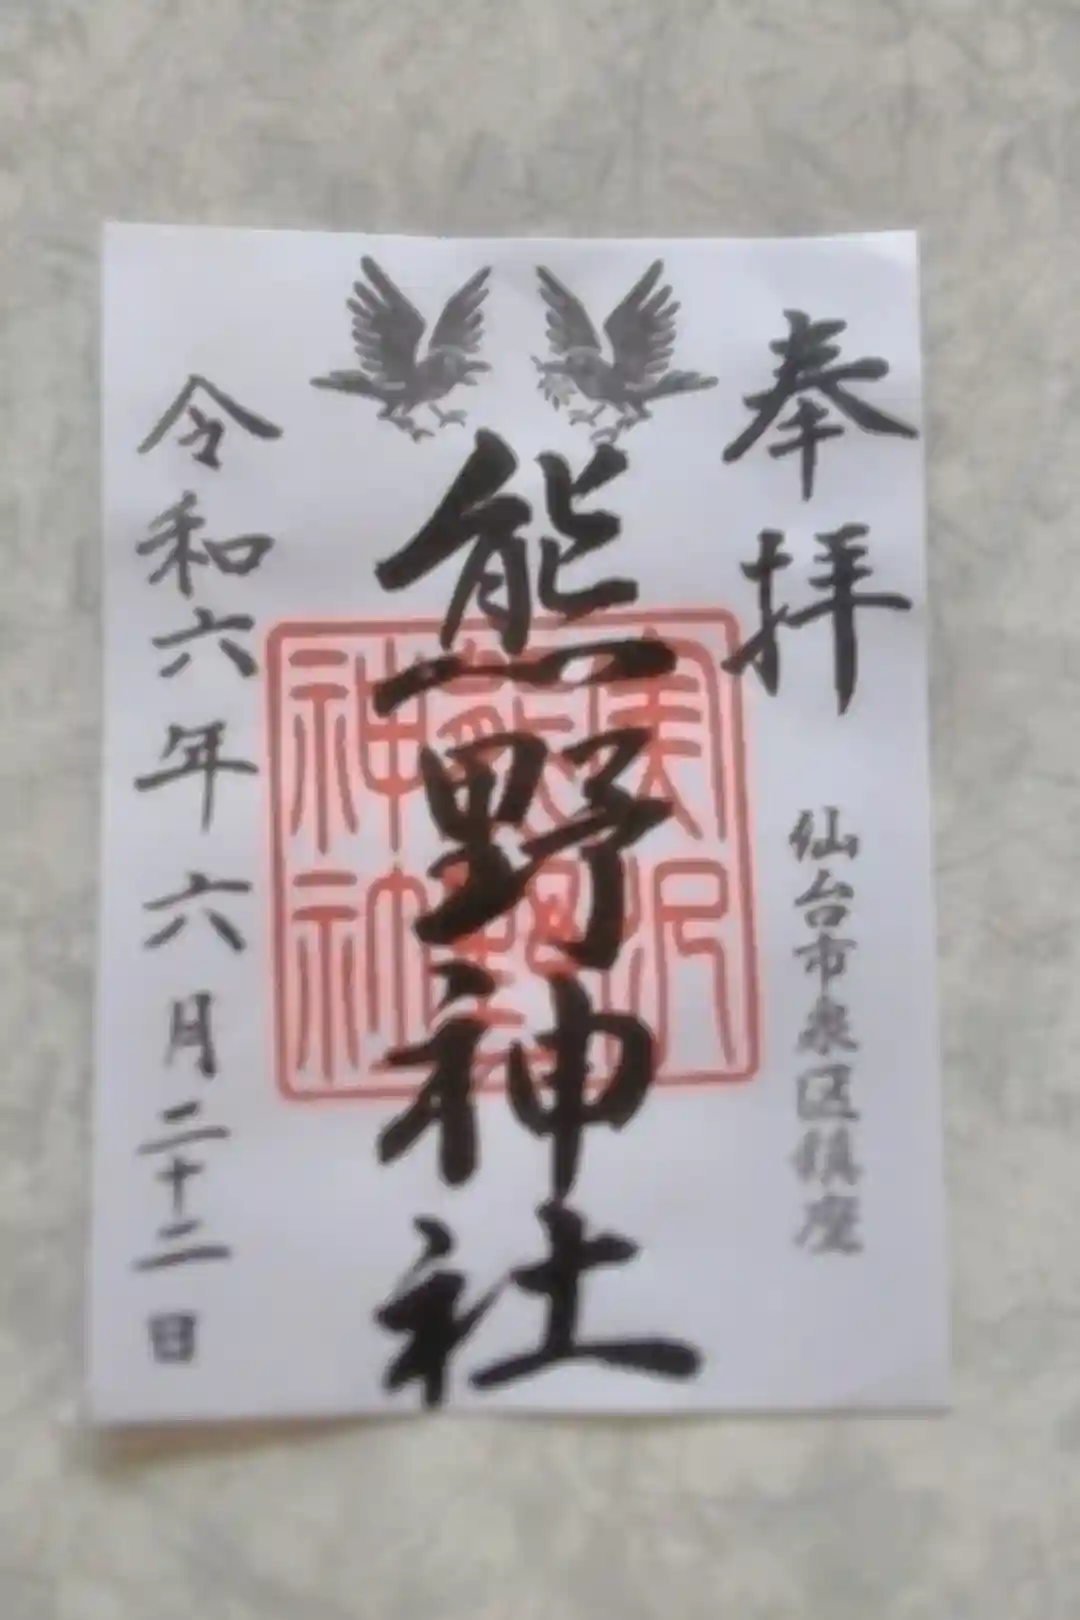 奉拝
仙台市泉区鎮座
熊野神社
実沢
熊野
神社
令和六年六月二十二日